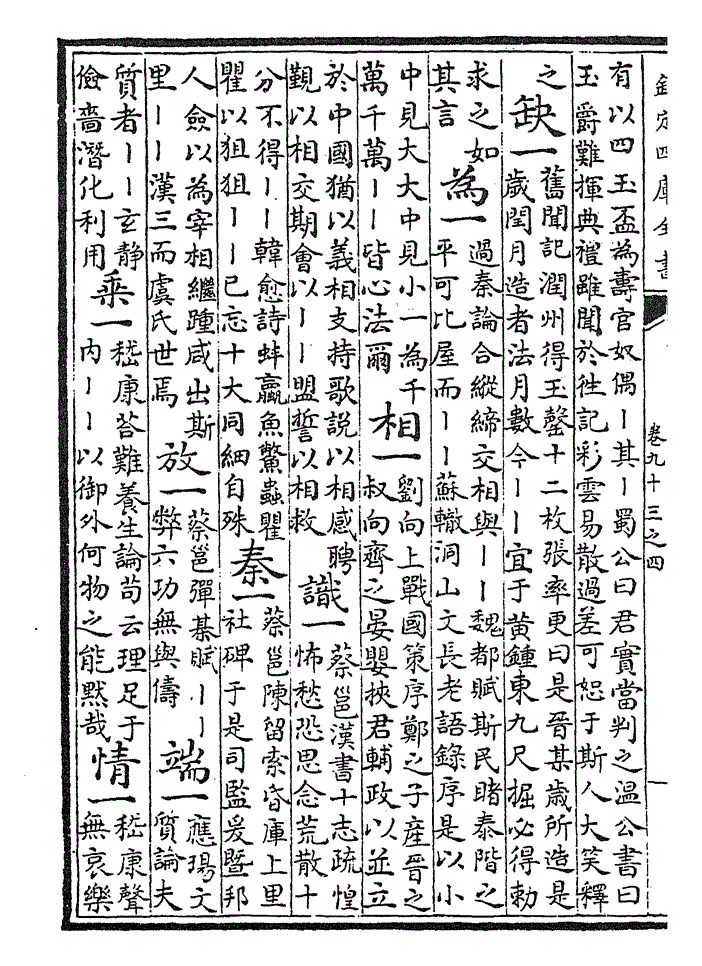 欽定四庫全書
卷九十三之四
有以四玉盃為壽官奴偶丨其丨蜀公曰君實當判之溫公書曰
玉爵難揮典禮雖聞於徃記彩雲易散過差可恕于斯人大笑釋
之
缺一
舊聞記潤州得玉罄十二枚張率更曰是晉某歲所造是
歲閏月造者法月數今丨丨宜于黄鍾東九尺掘必得勅
求之如
其言
為一
過秦論合縱締交相與丨丨魏都賦斯民睹泰階之
平可比屋而丨丨蘇轍洞山文長老語錄序是以小
中見大大中見小一為千
萬千萬丨丨皆心法爾
相一
劉向上戰國策序鄭之子產晉之
叔向齊之晏嬰挾君輔政以並立
於中國猶以義相支持歌說以相感聘
覲以相交期會以丨丨盟誓以相救
識一
蔡邕漢書十志疏惶
怖愁恐思念荒散十
分不得丨丨韓愈詩蚌蠃魚鱉蟲瞿
瞿以狙狙丨丨已忘十大同細自殊
秦一
蔡邕陳留索昏庫上里
社碑于是司監爰暨邦
人僉以為宰相繼踵咸出斯
里丨丨漢三而虞氏世焉
放一
蔡邕彈棊賦丨丨
弊六功無與儔
端一
應瑒文
質論夫
質者丨丨玄静
儉嗇潛化利用
乘一
嵇康荅難養生論苟云理足于
内丨丨以御外何物之能黙哉
情一
嵇康聲
無哀樂